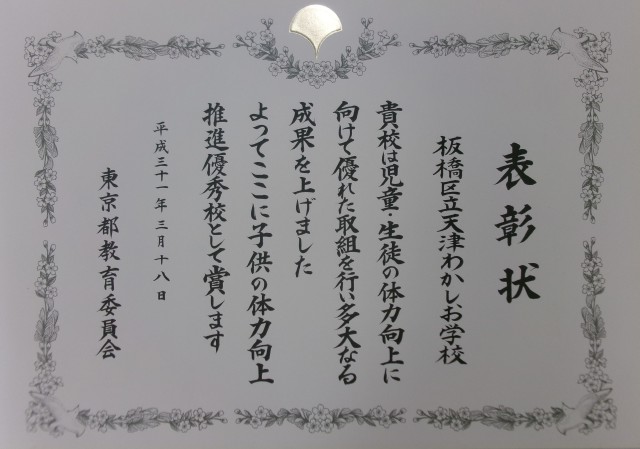 表彰状
板橋区立天津わかしお学校
貴校は児童・生徒の体力向上に
向けて優れた取組を行い多大なる
成果を上げました
よってここに子供の体力向上
推進優秀校として賞します
平成三十一年三月十八日
東京都教育委員会